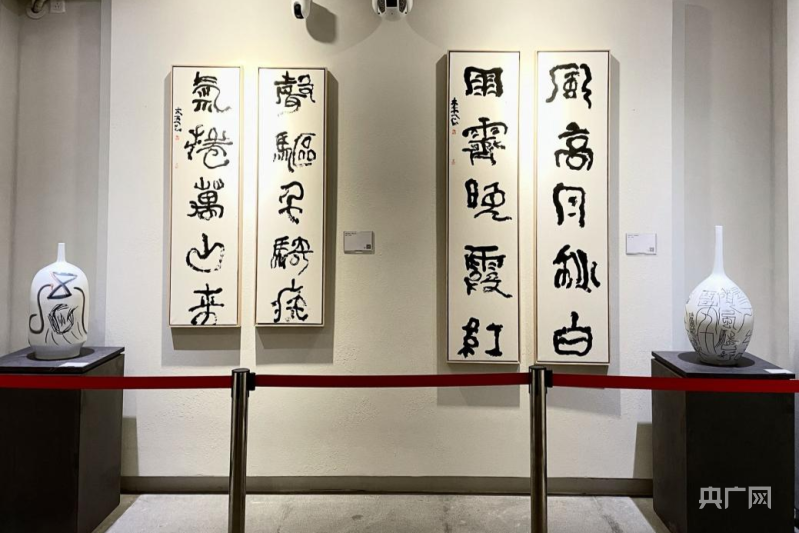 風高月秋白
雨霽晚霞紅
聲驅千騎疾
氣捲萬山來
央广网